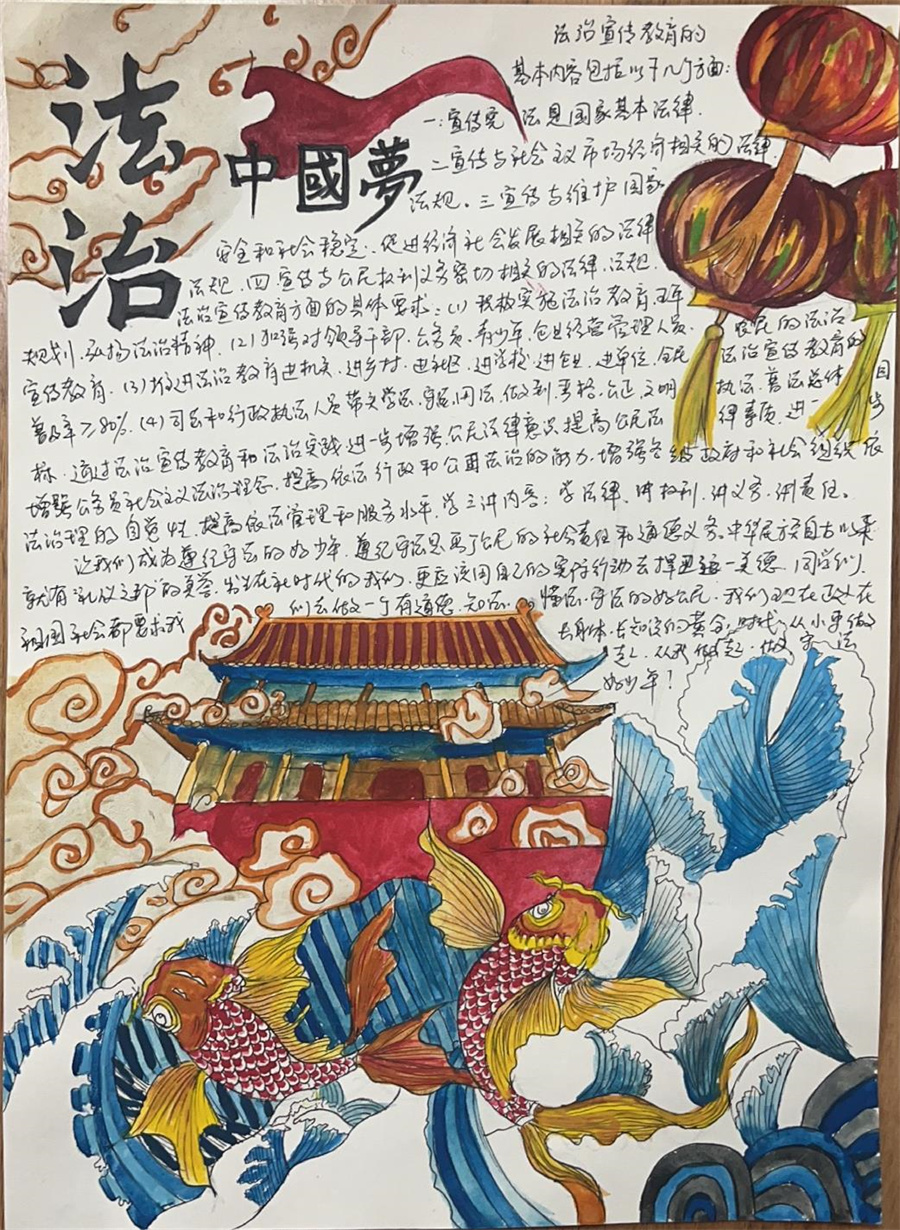 法治
中國夢
法治宣传教育的
基本内容包括以下几个方面：
一：宣传宪法是国家基本法律.
二宣传与社会主义市场经济相关的法律
法规。三宣传与维护国家
安全和社会稳定.促进经济社会发展相关的法律
法规.四宣传与公民权利义务密切相关的法律.法规.
法治宣传教育方面的具体要求：(1)积极实施法治教育五年
规划.弘扬法治精神.(2)加强对领导干部.公务员.青少年.企业经营管理人员.农民的法治
宣传教育.(3)推进法治教育进机关.进乡村.进社区.进学校.进企业.进单位.全民法治宣传教育的
普及率≥80%.(4)司法和行政执法人员带头学法.守法.用法.做到严格.公正.文明执法.普法总体目
标.通过法治宣传教育和法治实践.进一步增强公民法律意识.提高公民法律素质.进一步
增强公务员社会主义法治理念.提高依法行政和公正法治的能力.增强各级政府和社会组织依
法治理的自觉性.提高依法管理和服务水平.学三讲内容：学法律、讲权利.讲义务.讲责任。
让我们成为遵纪守法的好少年.遵纪守法是每个公民的社会责任和道德义务。中华民族自古以来
就有“礼仪之邦”的美誉.生在新时代的我们.更应该用自己的实际行动去捍卫这一美德.同学们.
祖国社会都要求我们去做一个有道德.知法.懂法.守法的好公民.我们现在正处在
长身体.长知识的黄金时代.从小事做
起.从我做起.做守法
好少年！